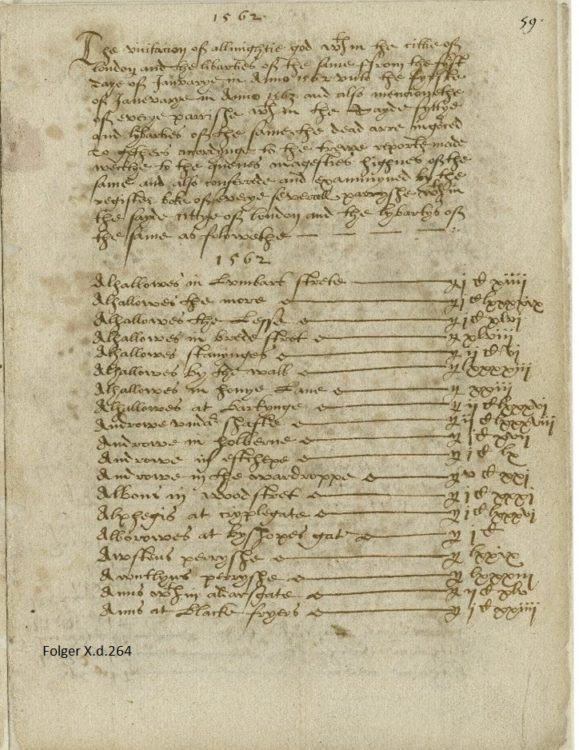 1562
59
The visitacion of allmightie god wthin the cittie of
london and the liberties of the same from the first
daye of Januarye in Anno 1562 untill the fyrste
of Januarye in Anno 1563 and also mencionethe
of everye parrishe wthin the sayde cyttye
and lyberties of the same the dead are
to gethers accordinge to the trewe reporte made
weeklye to the quenes magesties highnes of the
same and also conferrede and examinyned by the
register boke of everye severall parryshe wthin
the sayde cittye of london and the lybertys of
the same as folowethe
1562
Alhallowes in Lumbart strete ij C xiiij
Alhallowes the more j C
Alhallowes the Lesse j C xlvi
Alhallowes in brede stret xlviii
Alhallowes staninges ij C vi
Alhallowes by the wall lxxxxiii
Alhallowes in honye Lane xxiii
Alhallowes at barkynge iij C lxxxvi
Androwe undr shafte ij C lxxxviii
Androwe in holberne j C xvii
Androwe in estchepe j C lx
Androwe in the wardroppe v C xxi
Albons in woodstret j C xxxi
Alphegis at cryplegate j C lxxxvi
Alborowes at byshopes gat j C
Awstens perryshe lxxix
perryshe lxxxxiii
Anns wthin aldarsgate ij C xlv
Anns at blacke fryers j C xxiiii
Folger X.d.264